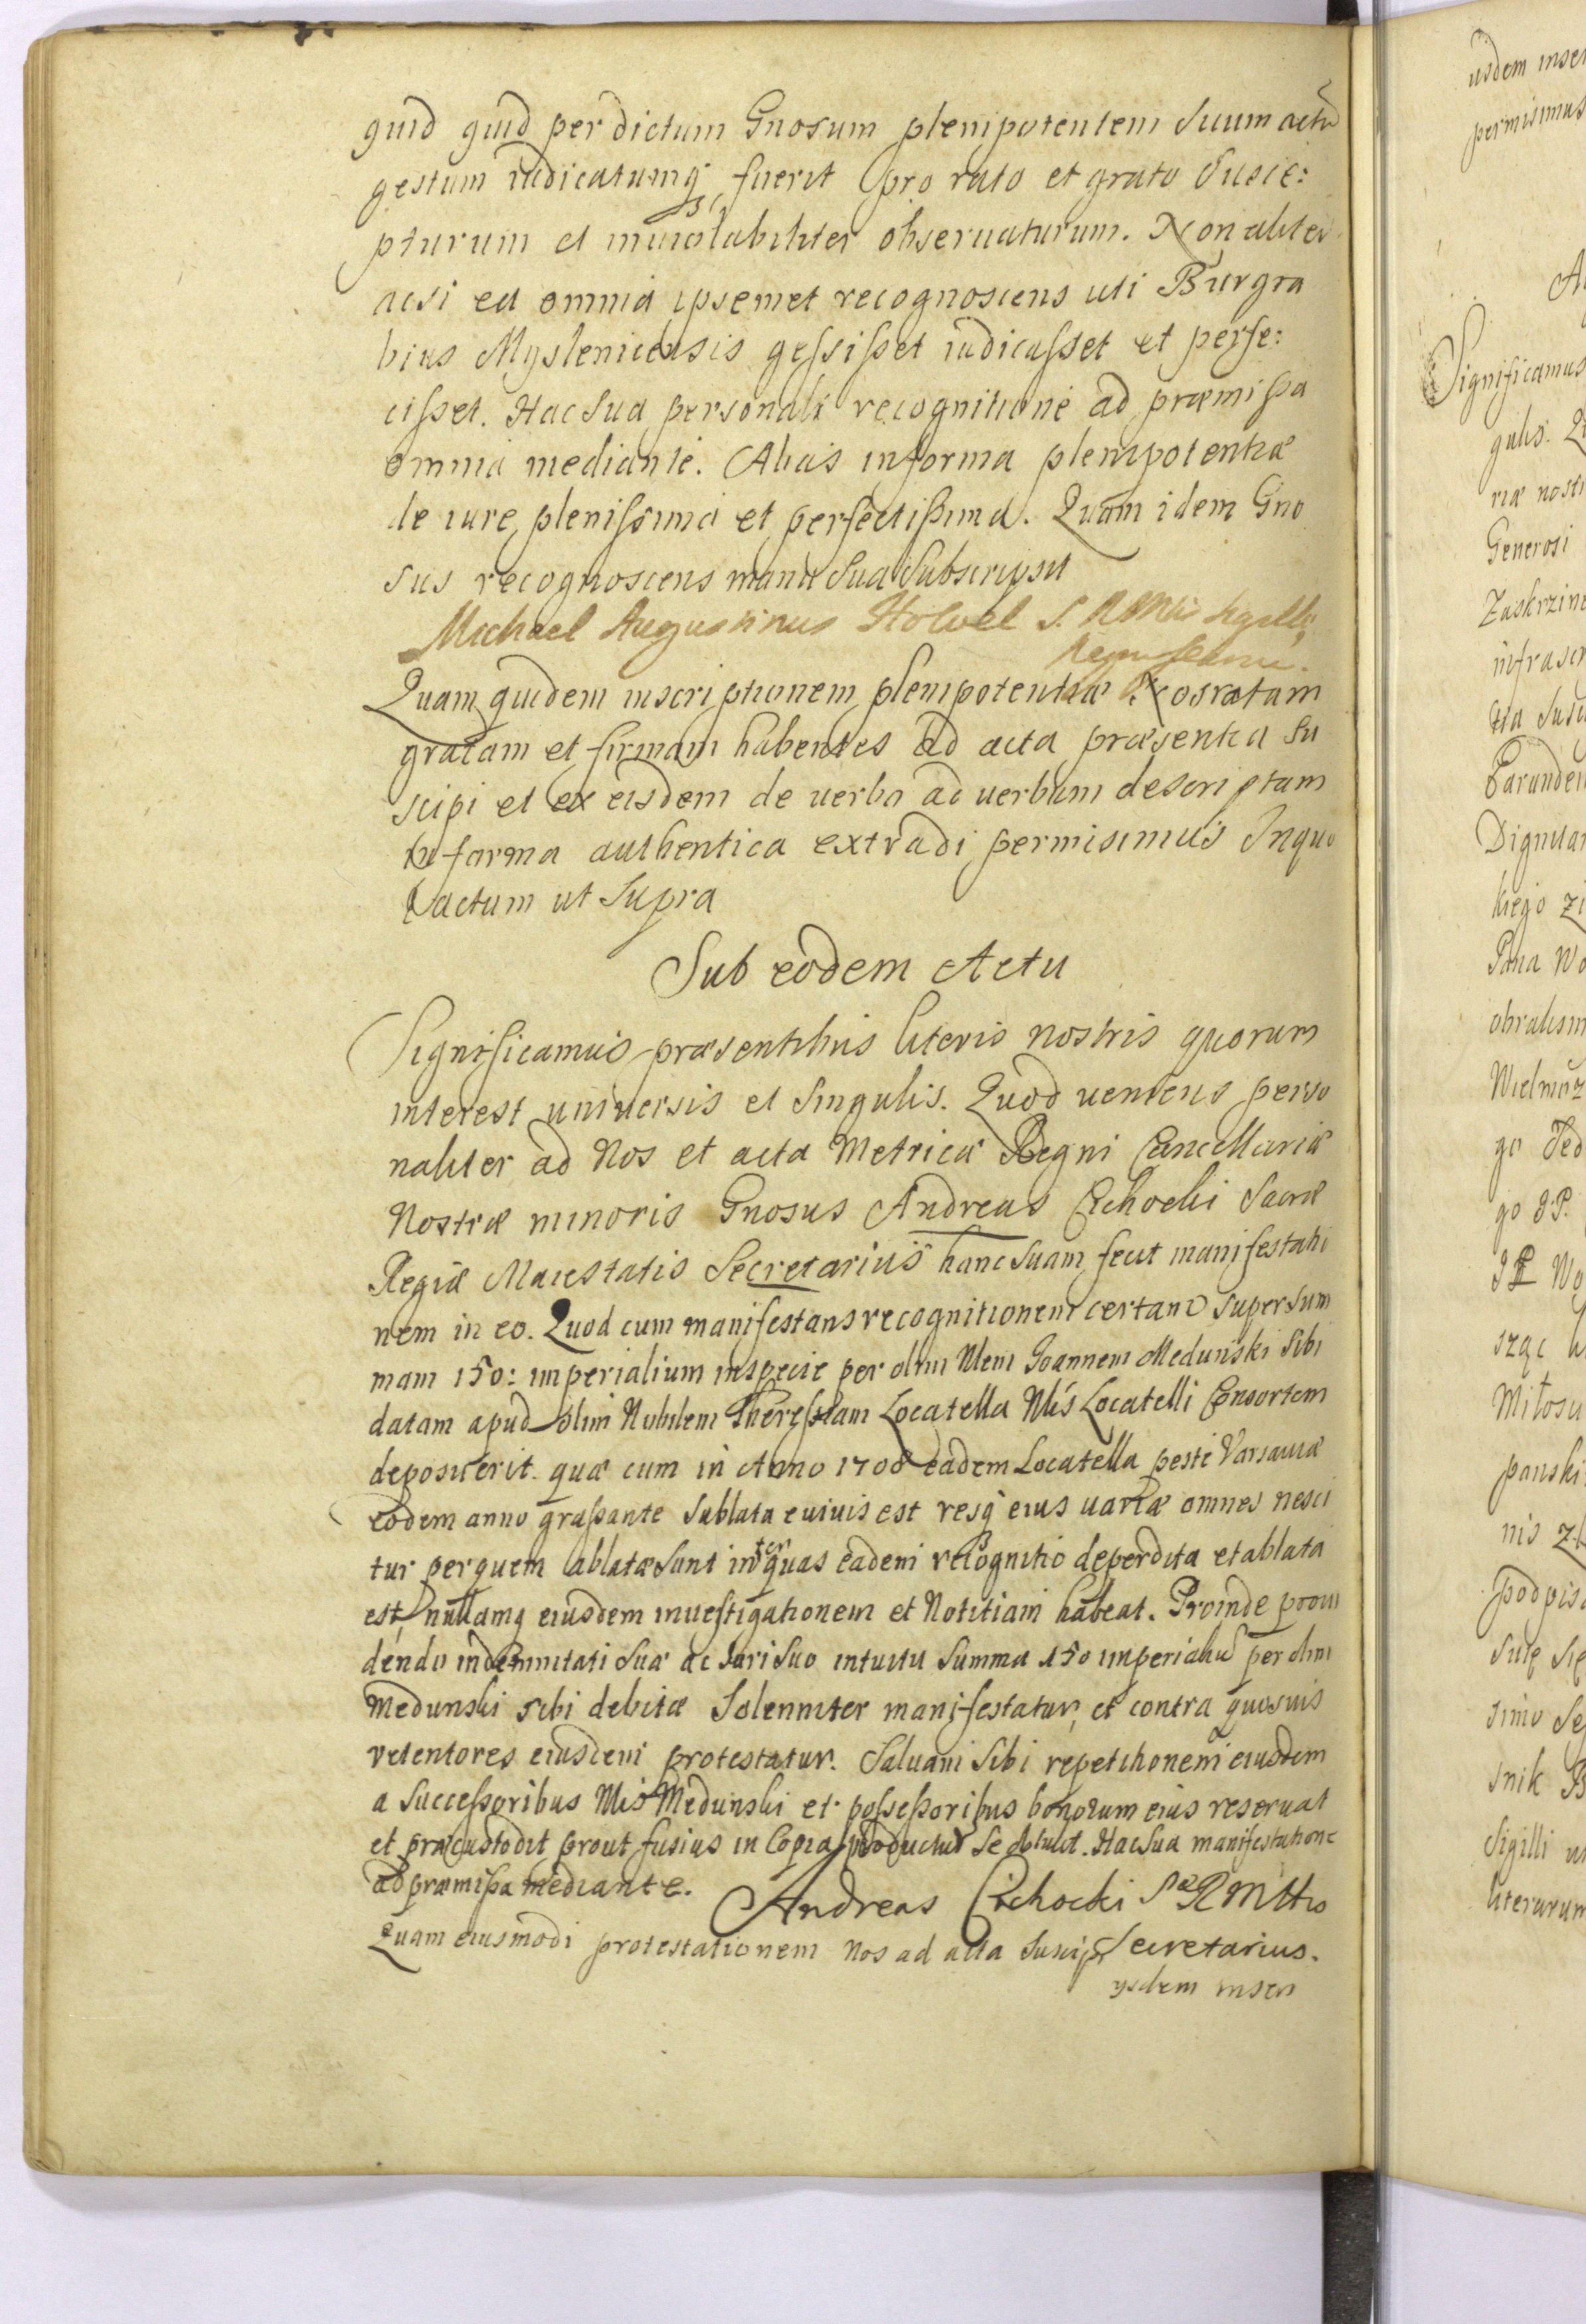 quid quid per dictum Gnosum plenipotentem Suum actu
gestum iudicatumq fuerit pro rato et grato Susce:
pturum et inuiolabiliter obseruaturum. Non aliter
acsi ea omnia ipsemet recognoscens uti Burgra
bius Myslenicensis gessisset iudicasset et perfe:
cisset. Hac Sua personali recognitione ad præmissa
omnia mediante. Alias in forma plenipotentiæ
de iure plenissima et perfectissima. Quam idem Gno
sus recognoscens manu Sua Subscripsit
Michael Augustinus
Quam quidem inscriptionem plenipotentiæ Nos ratam
gratam et firmam habentes ad acta præsentia Su
scipi et ex eisdem de uerbo ad uerbum descriptam
in forma authentica extradi permisimus Inquo
actum ut Supra
Sub eodem Actu
Significamus præsentibus literis nostris quorum
interest uniuersis et Singulis. Quod ueniens perso
naliter ad Nos et acta Metricæ Regni Cancellariæ
Nostræ minoris Gnosus Andreas Cichocki Sacræ
Regiæ Maiestatis Secretarius hanc Suam fecit manifestatio
nem in eo. Quod cum manifestans recognitionem certam super Sum
mam 150: imperialium in specie per olim Nlem Joannem Medunski Sibi
datam apud olim Nobilem Theresiam Locatella Nlis Locatelli Consortem
deposuerit. quæ cum in Anno 1708 eadem Locatella peste Varsauiæ
eodem anno grassante Sublata e uiuis est resq eius uariæ omnes nesci
tur per quem ablatæ Sunt inter quas eadem recognitio deperdita et ablata
est, nullamq eiusdem inuestigationem et Notitiam habeat. Proinde proui
dendo indemnitati Suæ ac Juri Suo intuitu Summa 150 imperialiu per olim
Medunski sibi debitæ Solenniter manifestatur, et contra quosuis
retentores eiusdem protestatur. Saluam Sibi repetitionem eiusdem
a Successoribus Nlis Medunski et possessoribus bonorum eius reseruat
et præcustodit prout fusius in Copia producta Se obtulit. Hac Sua manifestatione
ad præmissa mediante. Andreas Cichocki S R Mttis
Secretarius.
Quam eiusmodi protestationem Nos ad acta Suscipi
ysdem inseri